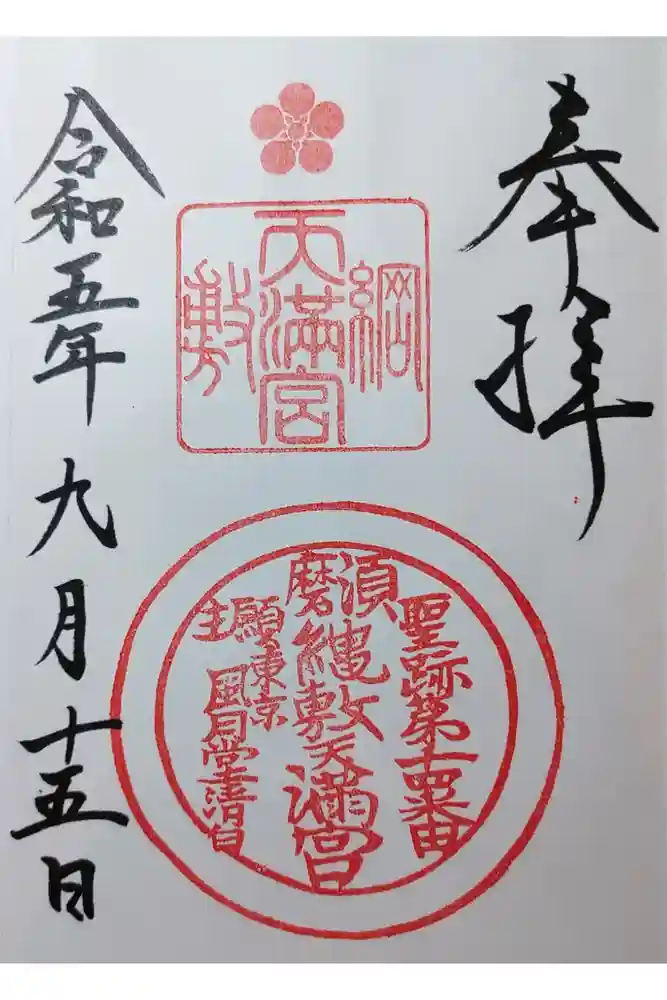 奉拝
綱
天満宮
敷
聖跡第十四番
須磨
縄敷天満宮
願主
東京
風月堂
令和五年九月十五日